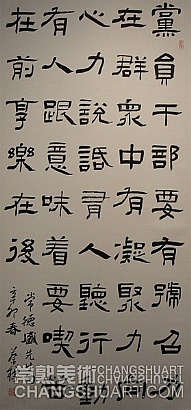 黨員干部要有號召
在群衆中有凝聚力
心力說話有人聽行動
有人跟意味着要喫
在前享樂在後
常德盛先
辛卯春
常熟美術 CHANGSHUART